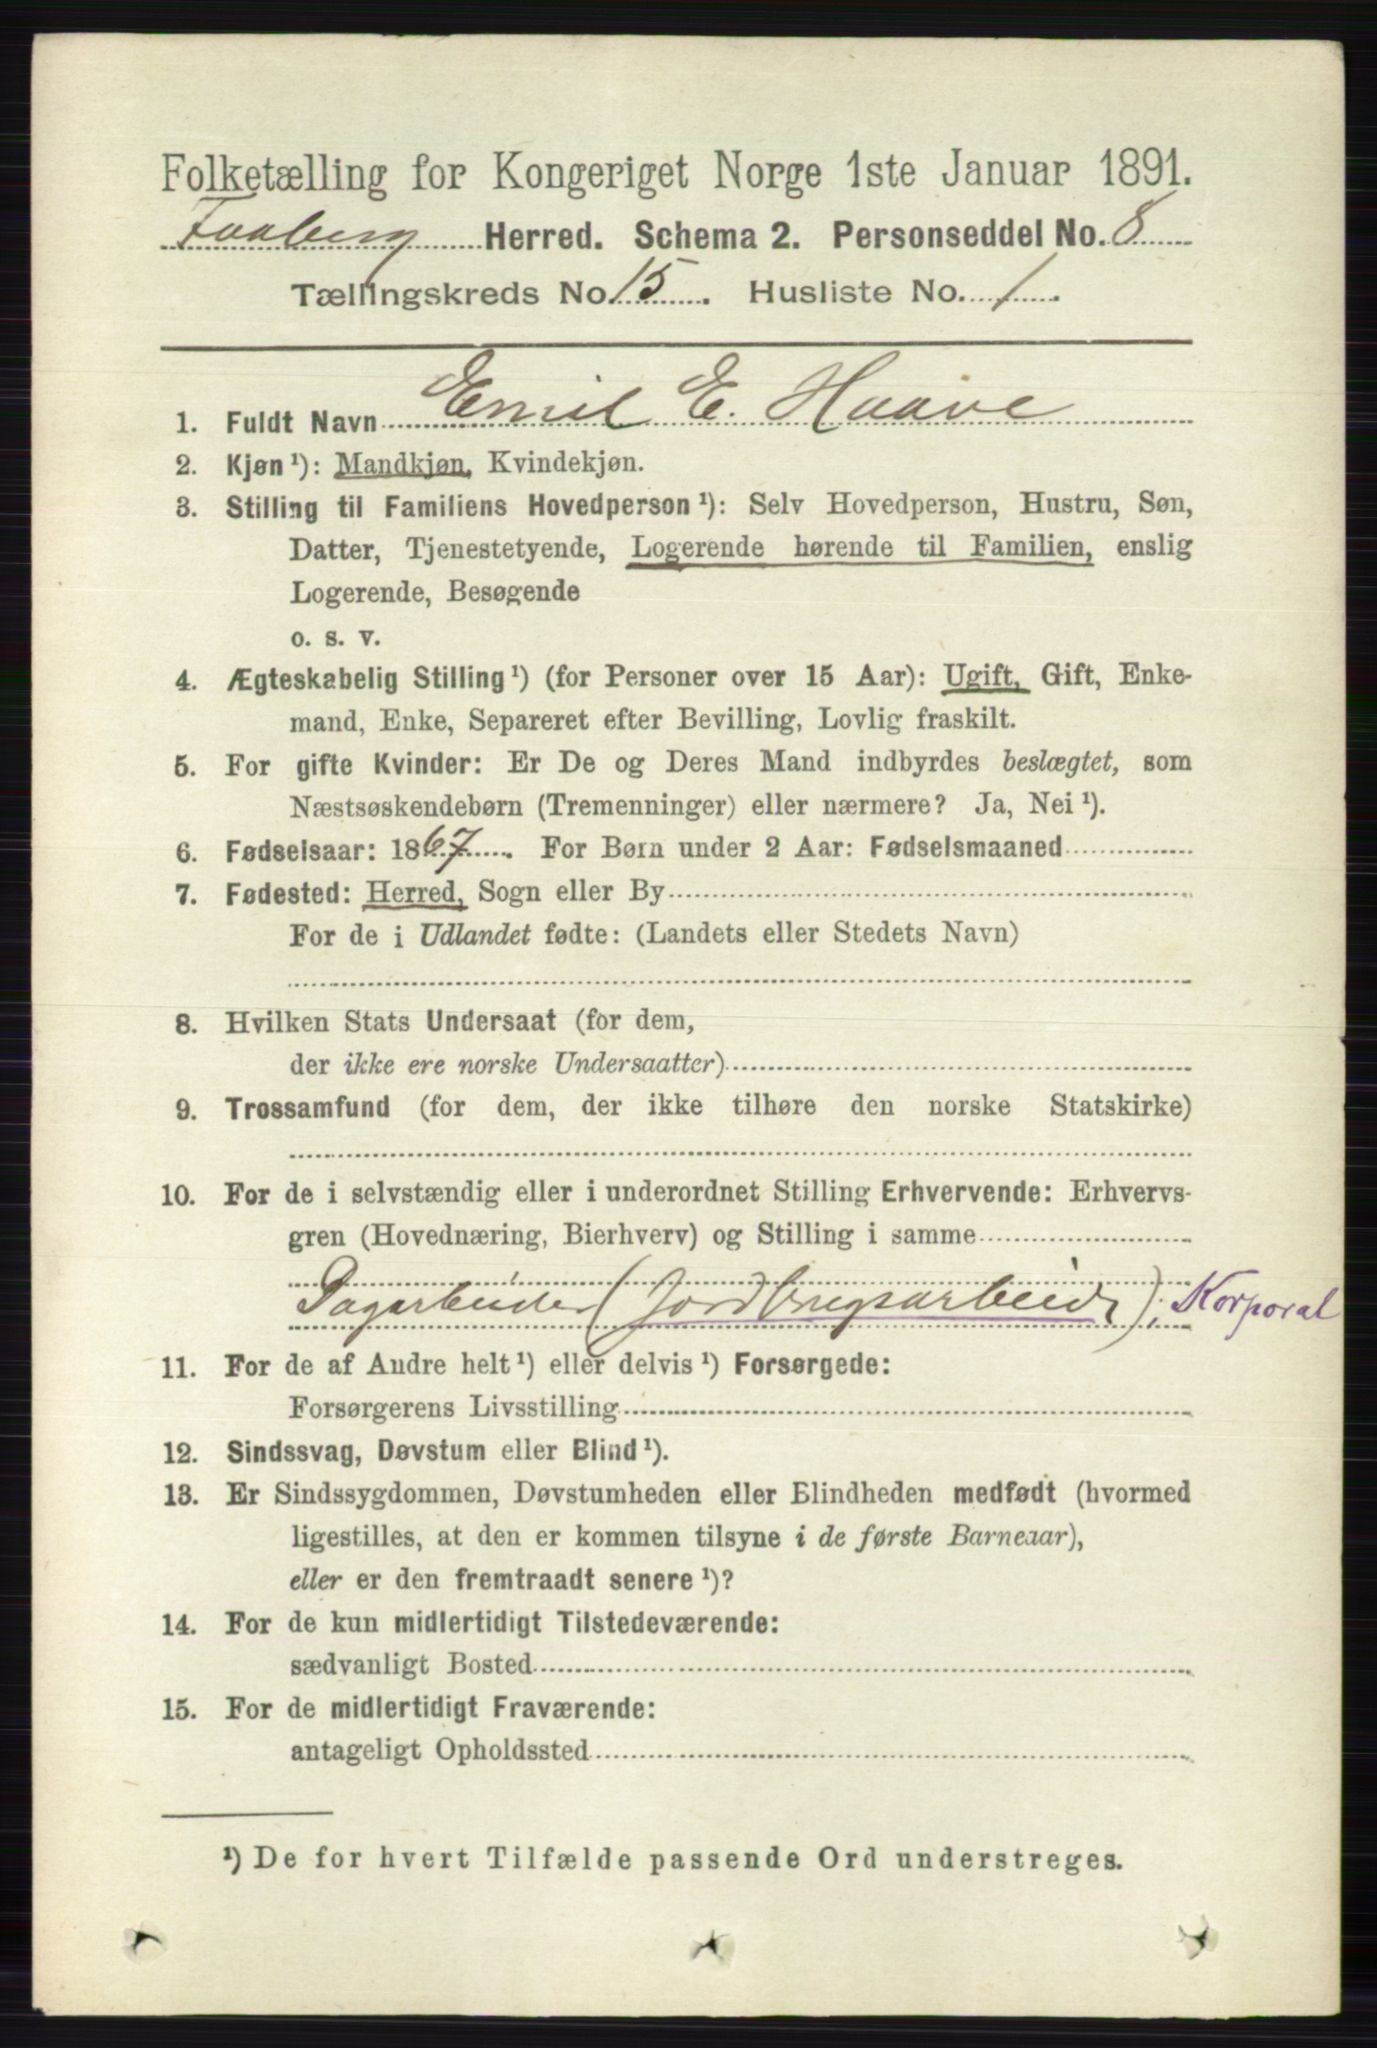 Folketælling for Kongeriget Norge 1ste Januar 1891.
Faaberg Herred. Schema 2. Personseddel No. 8
Tællingskreds No. 15. Husliste No. 1.
1. Fuldt Navn Emil E. Haave
2. Kjøn ¹): Mandkjøn, Kvindekjøn.
3. Stilling til Familiens Hovedperson ¹): Selv Hovedperson, Hustru, Søn,
Datter, Tjenestetyende, Logerende hørende til Familien, enslig
Logerende, Besøgende
o. s. v.
4. Ægteskabelig Stilling ¹) (for Personer over 15 Aar): Ugift, Gift, Enke-
mand, Enke, Separeret efter Bevilling, Lovlig fraskilt.
5. For gifte Kvinder: Er De og Deres Mand indbyrdes beslægtet, som
Næstsøskendebørn (Tremenninger) eller nærmere? Ja, Nei ¹).
6. Fødselsaar: 1867. For Børn under 2 Aar: Fødselsmaaned
7. Fødested: Herred, Sogn eller By
For de i Udlandet fødte: (Landets eller Stedets Navn)
8. Hvilken Stats Undersaat (for dem,
der ikke ere norske Undersaatter)
9. Trossamfund (for dem, der ikke tilhøre den norske Statskirke)
10. For de i selvstændig eller i underordnet Stilling Erhvervende: Erhvervs-
gren (Hovednæring, Bierhverv) og Stilling i samme
Dagarbeider (Jordbrugsarbeide); Korporal
11. For de af Andre helt ¹) eller delvis ¹) Forsørgede:
Forsørgerens Livsstilling
12. Sindssvag, Døvstum eller Blind ¹).
13. Er Sindssygdommen, Døvstumheden eller Blindheden medfødt (hvormed
ligestilles, at den er kommen tilsyne i de første Barneaar),
eller er den fremtraadt senere ¹)?
14. For de kun midlertidigt Tilstedeværende:
sædvanligt Bosted
15. For de midlertidigt Fraværende:
antageligt Opholdssted
¹) De for hvert Tilfælde passende Ord understreges.